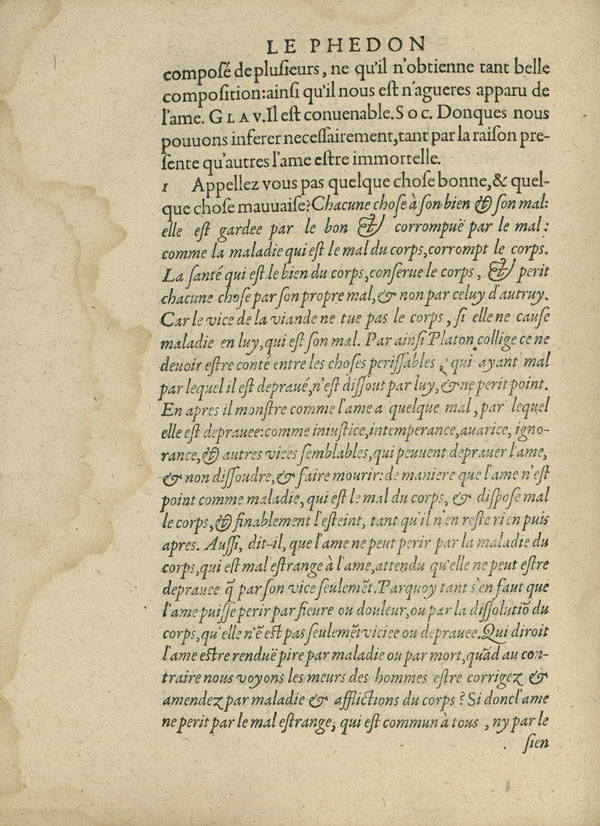 LE PHEDON
composé de plusieurs, ne qu'il n'obtienne tant belle
composition: ainsi qu'il nous est n'agueres apparu de
l'ame. GLAV. Il est conuenable. Soc. Donques nous
pouuons inferer necessairement, tant par la raison pre-
sente qu'autres l'ame estre immortelle.
1 Appellez vous pas quelque chose bonne, & quel-
que chose mauuaise? Chacune chose à son bien & son mal:
elle est gardee par le bon & corrompuë par le mal:
comme la maladie qui est le mal du corps, corrompt le corps.
La santé qui est le bien du corps, conserue le corps, & perit
chacune chose par son propre mal, & non par celuy d'autruy.
Car le vice de la viande ne tue pas le corps, si elle ne cause
maladie en luy, qui est son mal. Par ainsi Platon collige ce ne
deuoir estre conté entre les choses perissables, qui ayant mal
par lequel il est depraué, n'est dissout par luy, & ne perit point.
En apres il monstre comme l'ame a quelque mal, par lequel
elle est deprauee: comme iniustice, intemperance, auarice, igno-
rance, & autres vices semblables, qui peuuent deprauer l'ame,
& non dissoudre, & faire mourir: de maniere que l'ame n'est
point comme maladie, qui est le mal du corps, & dispose mal
le corps, & finablement l'esteint, tant qu'il n'en reste rien puis
apres. Aussi, dit-il, que l'ame ne peut perir par la maladie du
corps, qui est mal estrange à l'ame, attendu qu'elle ne peut estre
deprauee q̃ par son vice seulemẽt. Parquoy tant s'en faut que
l'ame puisse perir par fieure ou douleur, ou par la dissolutiõ du
corps, qu'elle n'ẽ est pas seulemẽt viciee ou deprauee. Qui diroit
l'ame estre renduë pire par maladie ou par mort, quãd au con-
traire nous voyons les meurs des hommes estre corrigez &
amendez par maladie & afflictions du corps? Si donc l'ame
ne perit par le mal estrange, qui est commun à tous, ny par le
sien